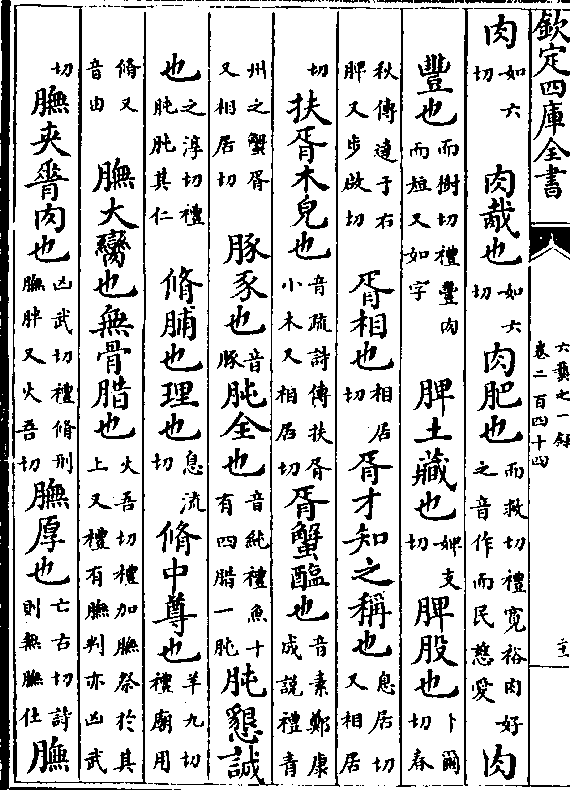 欽定四庫全書
六藝之一錄
卷二百四十四
肉如六切 肉哉也如六切 肉肥也而救切禮寬裕肉好之音作而民慈愛 肉
豐也而樹切禮豐肉而短又如字 脾土藏也婢支切 脾股也卜爾切春
秋傳達于右脾又步啟切 胥相也相居切 胥才知之稱也息居切又相居
切 扶胥木皃也音疏詩傳扶胥小木又相居切 胥蟹醢也音素鄭康成說禮青
州之蟹胥又相居切 豚豕也音豚 肫全也音純禮魚十有四腊一肫 肫懇誠
也之淳切禮肫肫其仁 脩脯也理也息流切 脩中尊也羊九切禮廟用
脩又音由 膴大臠也無骨腊也火吾切禮加膴祭於其上又禮有膴判亦凶武
切 膴夾脊肉也凶武切禮脩刑膴胖又火吾切 膴厚也亡古切詩則無膴仕 膴